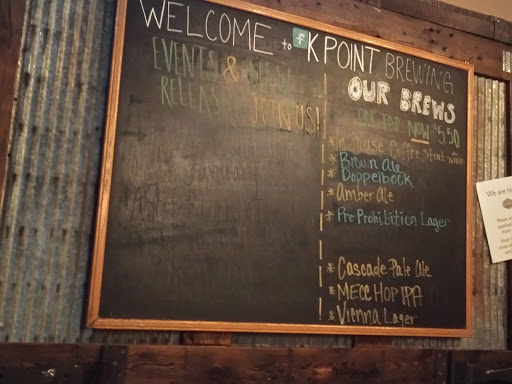 WELCOME to K POINT BREWING
EVENTS & NEW
RELEASES JOIN US!
OUR BREWS
ON TAP NOW $5.50
House Coffee Stout
* Brown Ale
* Doppelbock
* Amber Ale
* Pre Prohibition Lager
* Cascade Pale Ale
* MECC HOP IPA
* Vienna Lager
We are